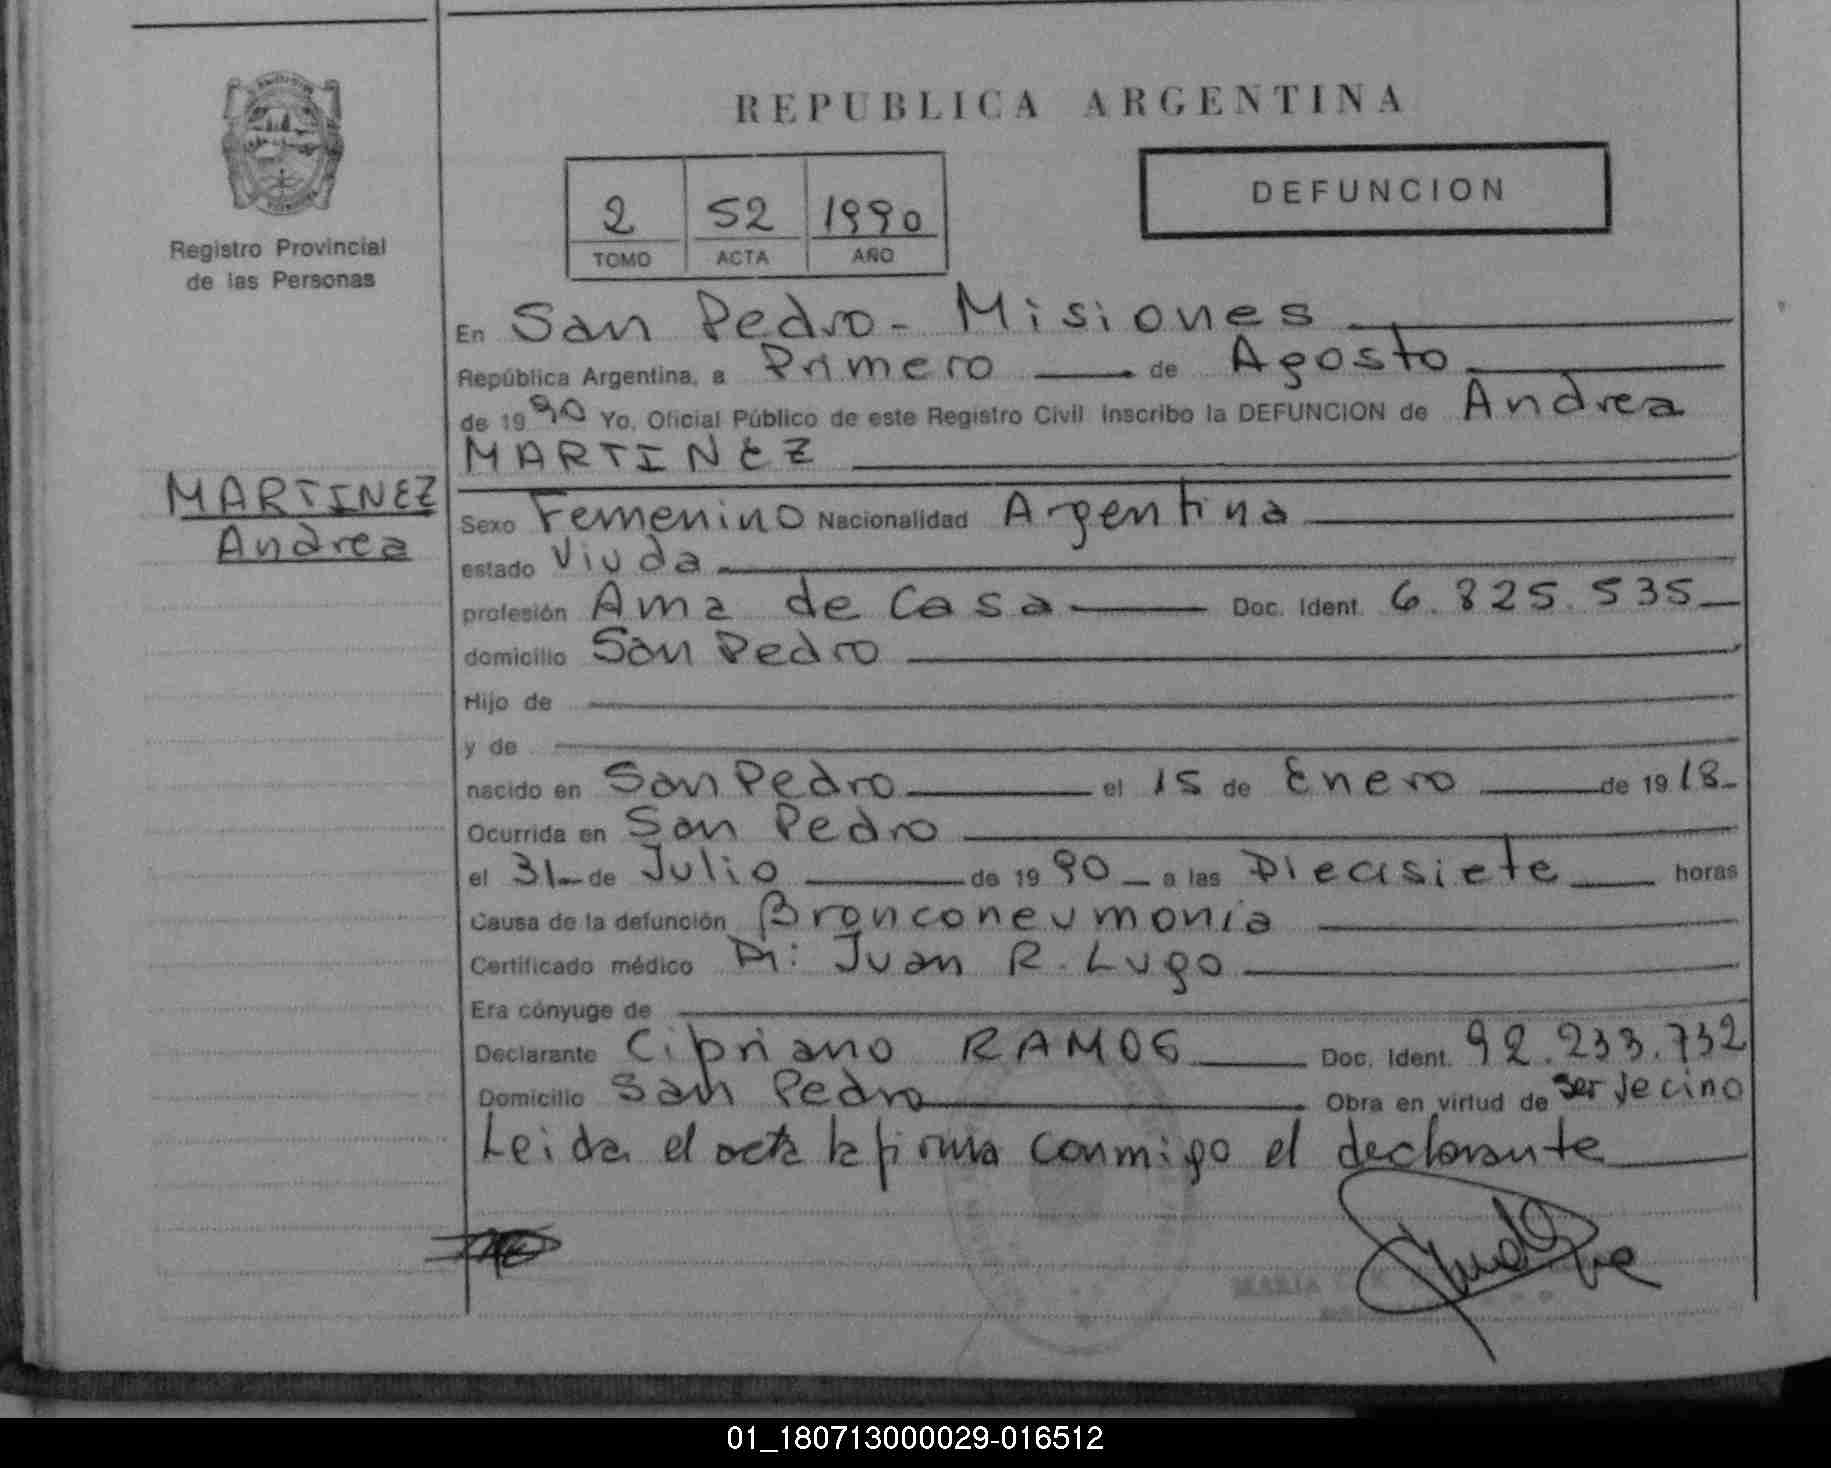 REPUBLICA ARGENTINA
DEFUNCION
2 52 1990
TOMO ACTA AÑO
Registro Provincial
de las Personas
En San Pedro - Misiones
República Argentina, a Primero de Agosto
de 1990 Yo, Oficial Público de este Registro Civil inscribo la DEFUNCION de Andrea
MARTINEZ
MARTINEZ
Andrea
Sexo Femenino Nacionalidad Argentina
estado Viuda
profesión Ama de Casa Doc. Ident. 6.825.535
domicilio San Pedro
Hijo de
y de
nacido en San Pedro el 15 de Enero de 1918
Ocurrida en San Pedro
el 31 de Julio de 1990 a las Diecisiete horas
Causa de la defunción Bronconeumonia
Certificado médico Dr: Juan R. Lugo
Era cónyuge de
Declarante Cipriano RAMOS Doc. Ident. 92.233.732
Domicilio San Pedro Obra en virtud de ser Vecino
Leida el acta la firma conmigo el declarante
MARIA
01_180713000029-016512